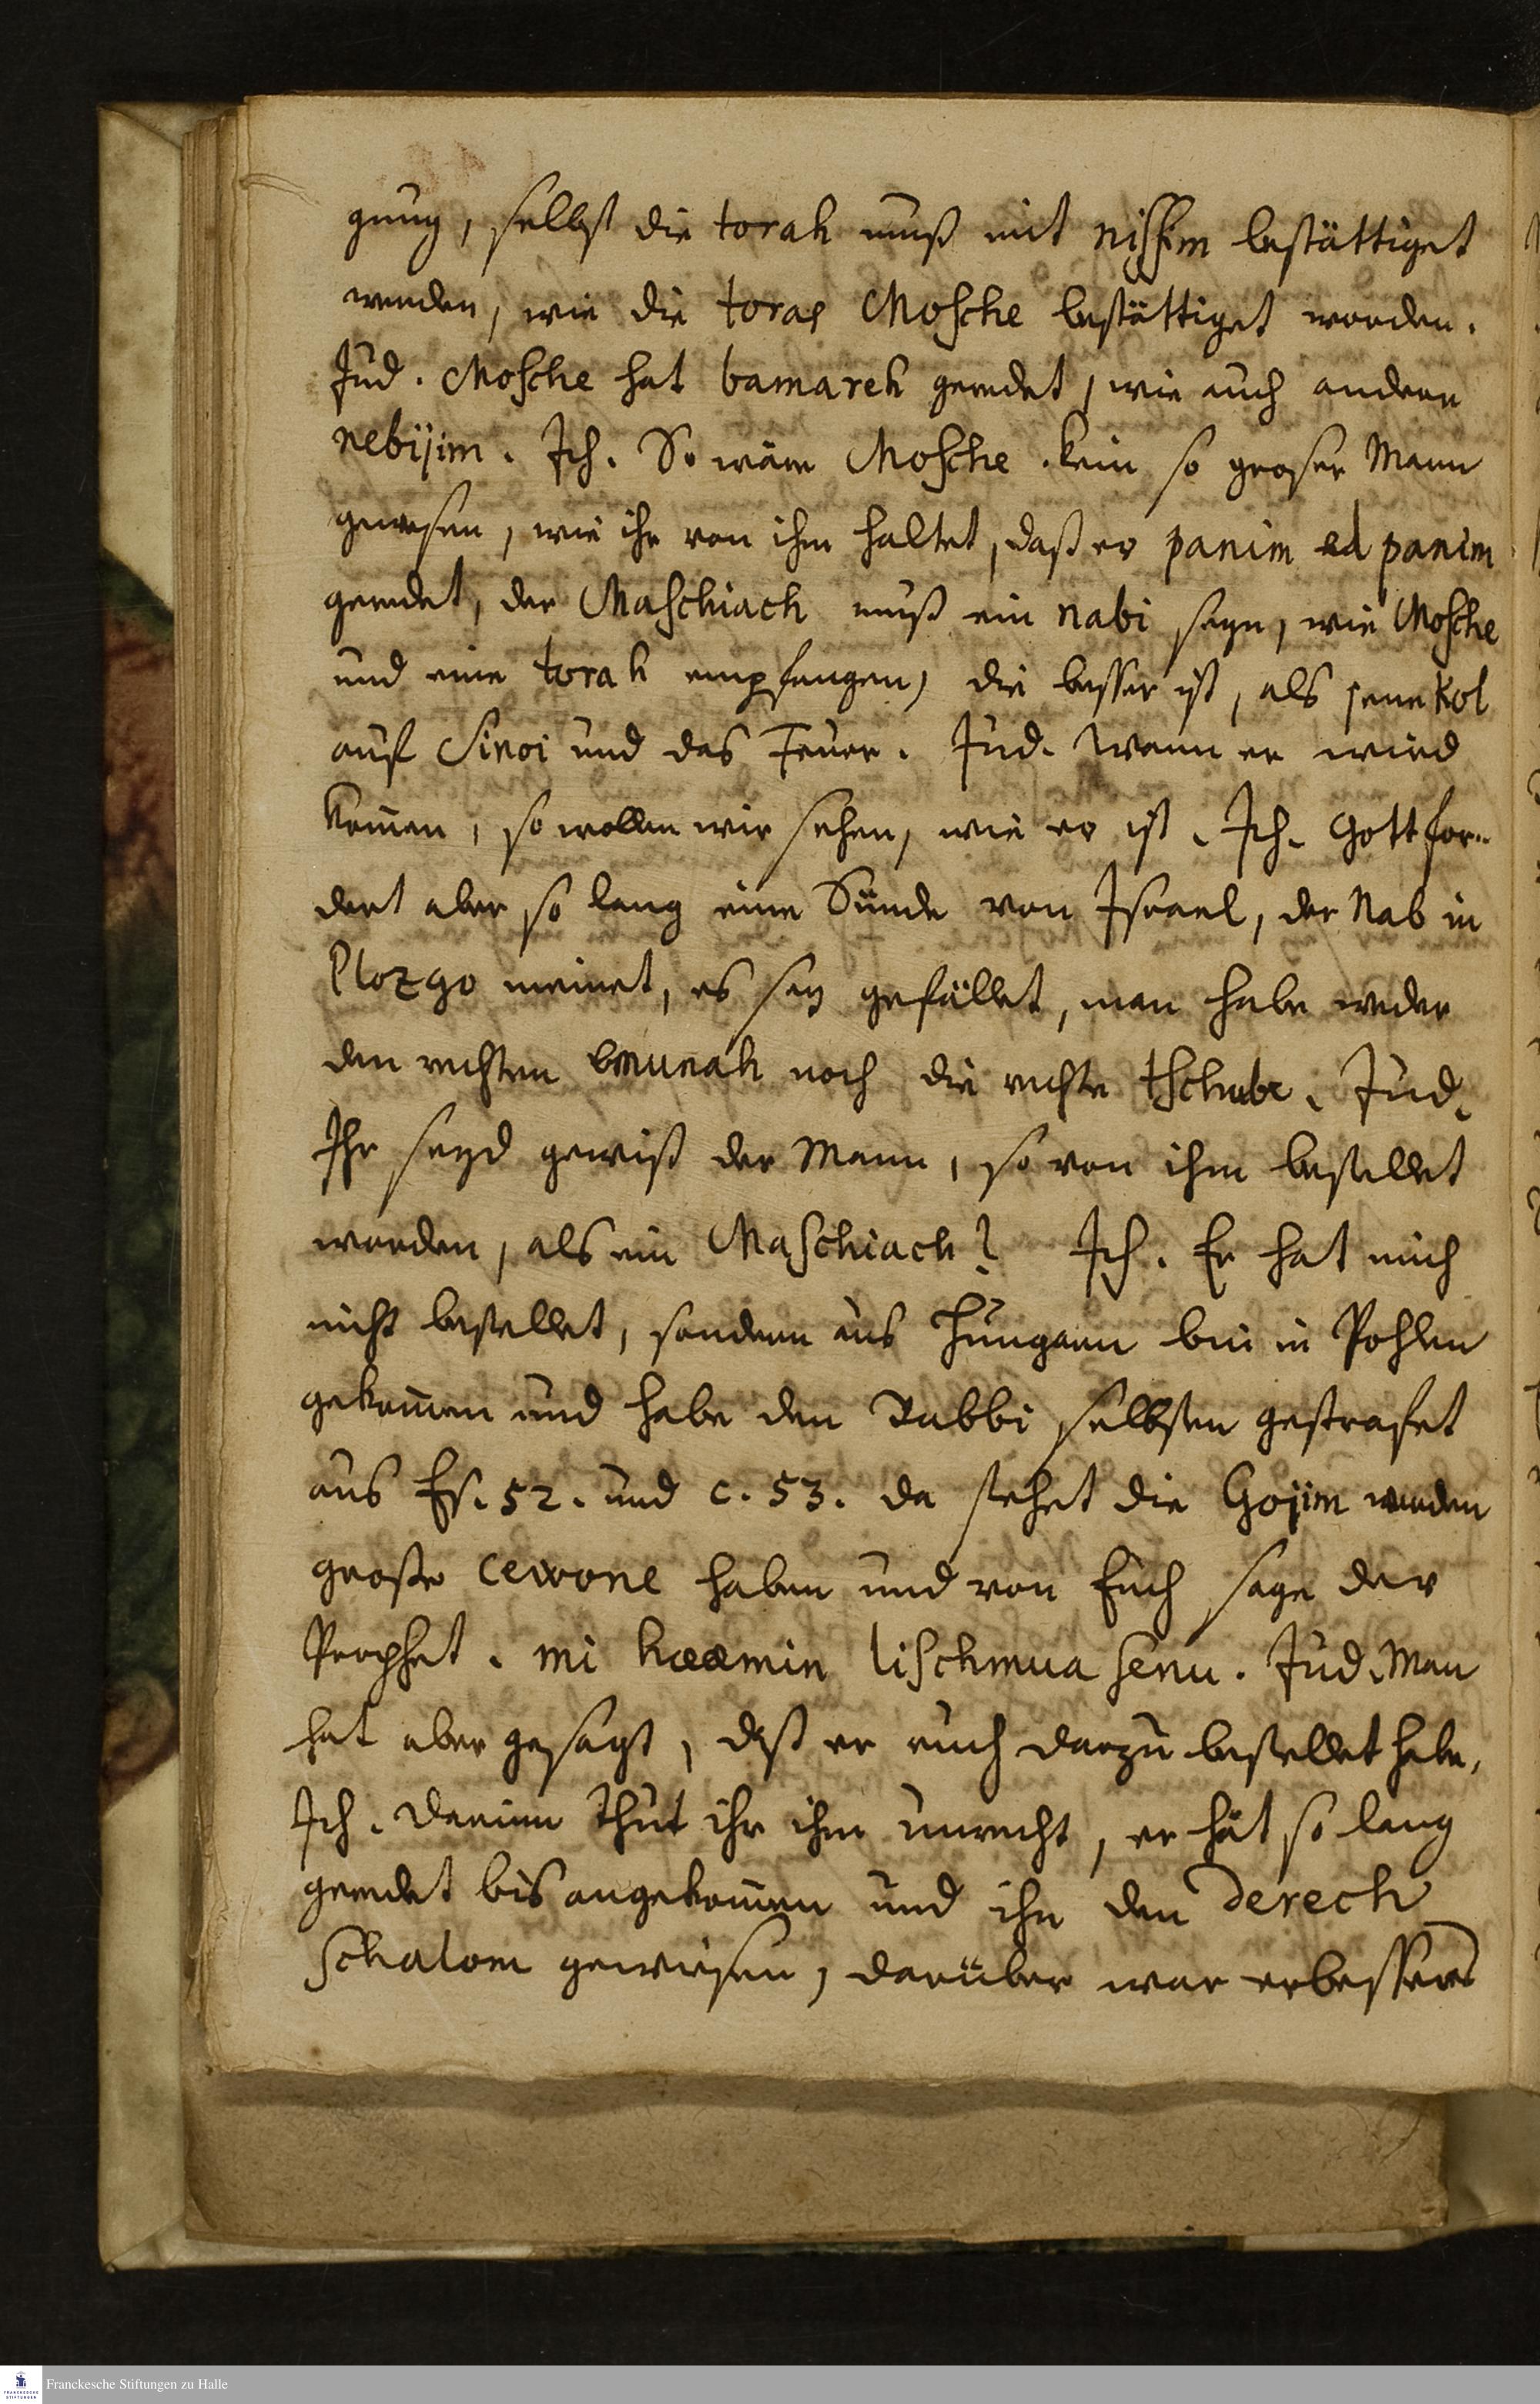 gung, selbst die torah muß mit nissim bestättiget
werden, wie die toras Mosche bestättiget worden.
Jud. Mosche hat bamareh geredet, wie auch andere
nebijim. Ich. So wäre Mosche kein so großer Mann
gewesen, wie ihr von ihm haltet, daß er panim el panim
geredet, der Maschiach muß ein nabi seyn, wie Mosche
und eine torah empfangen, die besser ist, als jene Kol
auf Sinoi und das Feuer. Jud. Wenn er wird
kom̃en, so wollen wir sehen, wie er ist. Ich. Gott for-
dert aber so lang eine Sünde von Israel, der Rab in
Plozgo meinet, es sey gefället, man habe weder
den rechten emunah noch die rechte tschube. Jud.
Ihr seyd gewiß der Mann, so von ihm bestellet
worden, als ein Maschiach? Ich. Er hat mich
nicht bestellet, sondern aus Hungarn bin in Pohlen
gekom̃en und habe den Rabbi selbsten gestrafet
aus Es. 52. und c. 53. da stehet die Gojim werden
große cewone haben und von Euch sage der
Prophet. mi heemin lischmua senu. Jud. Man
hat aber gesagt, daß er euch darzu bestellet habe,
Ich. Darinn thut ihr ihm unrecht, er hat so lang
geredet bis angekom̃en und ihn den Derech
Schalom gewiesen, darüber war er bessers
Franckesche Stiftungen zu Halle